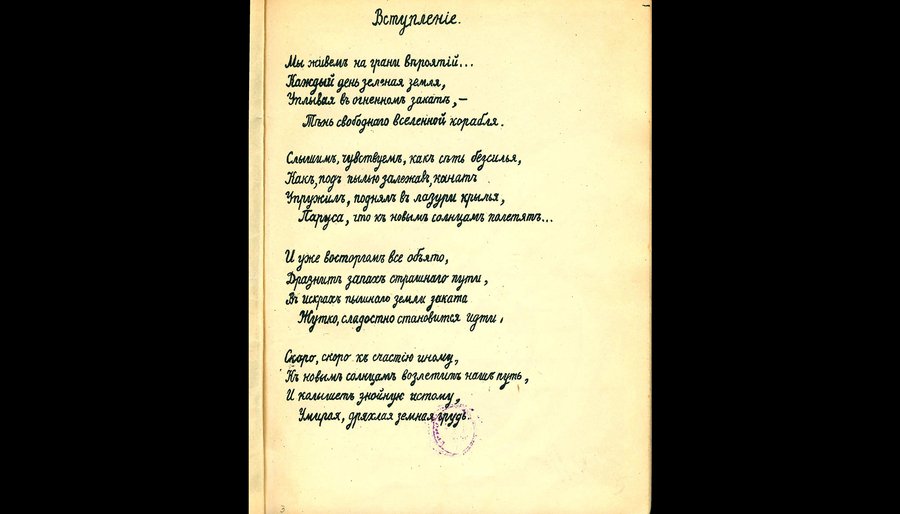 Вступленіе.
Мы живемъ на грани вѣроятій...
Каждый день зеленая земля,
Уплывая въ огненномъ закатѣ,—
Тѣнь свободнаго вселенной корабля.
Слышимъ, чувствуемъ, какъ сѣть безсилья,
Какъ, подъ пылью залежавъ, канатъ
Упружилъ, поднялъ въ лазури крылья,
Паруса, что къ новымъ солнцамъ полетятъ...
И уже восторгомъ все объято,
Дразнитъ запахъ страшнаго пути,
Въ искрахъ пышнаго земли заката
Жутко, сладостно становится идти,
Скоро, скоро къ счастію иному,
Къ новымъ солнцамъ возлетитъ нашъ путь,
И колышетъ знойную истому,
Умирая, дряхлая земная грудь.
3